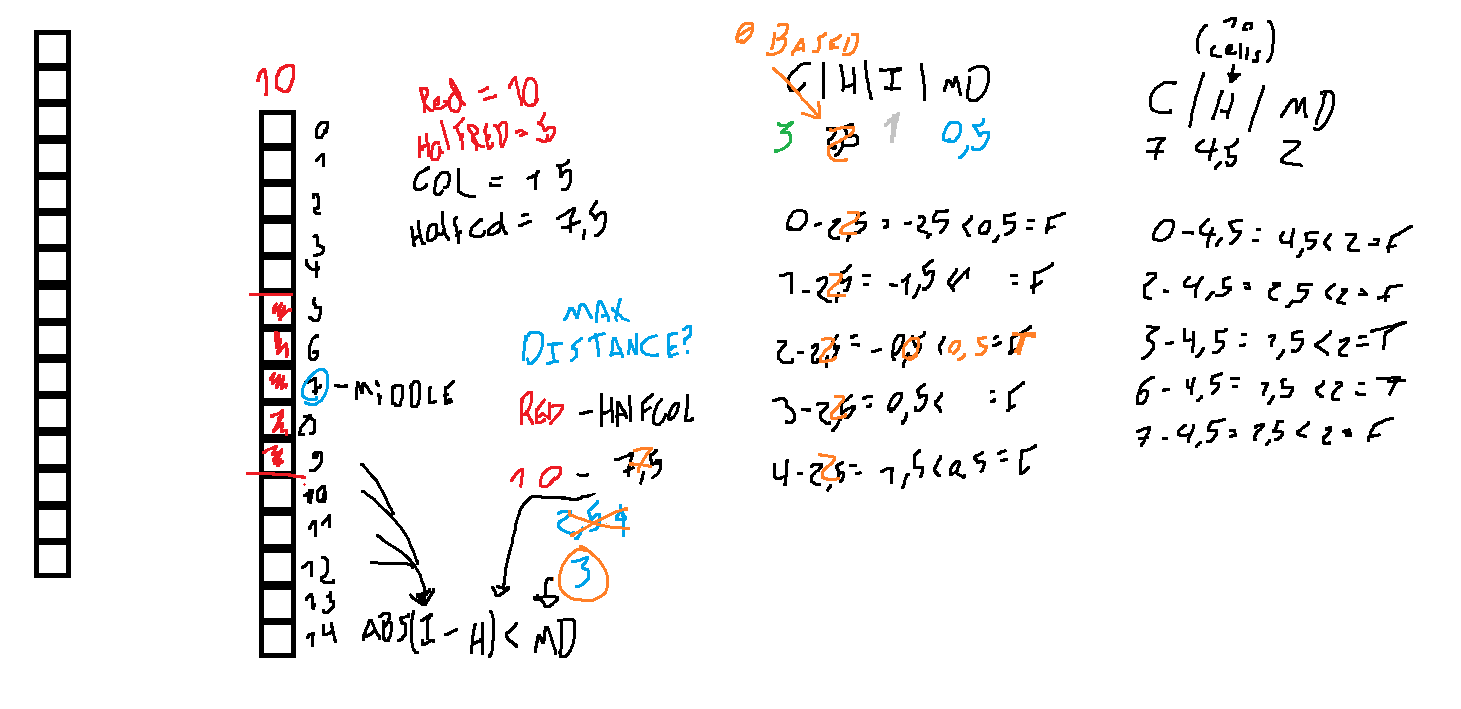 10
0
1
2
3
4
5
6
7 - MiDDLE
9
10
11
12
13
14
Red = 10
HalfRED = 5
COL = 15
HalfCol = 7,5
MAX
DISTANCE?
RED - HALFCOL
10 - 7
3
ABS(I - H) < MD
0 BASED
C | H | I | MD
3 2 1 0,5
0 - 2 = -2,5 < 0,5 = F
1 - 2 = -1,5 < = F
2 - 2 = - 0 < 0,5 = T
3 - 2 = 0,5 < = F
4 - 2 = 1,5 < 0,5 = F
(10
cells)
C | H | MD
7 4,5 2
0 - 4,5 = 4,5 < 2 = F
2 - 4,5 = 2,5 < 2 = F
3 - 4,5 = 1,5 < 2 = T
6 - 4,5 = 1,5 < 2 = T
7 - 4,5 = 2,5 < 2 = F